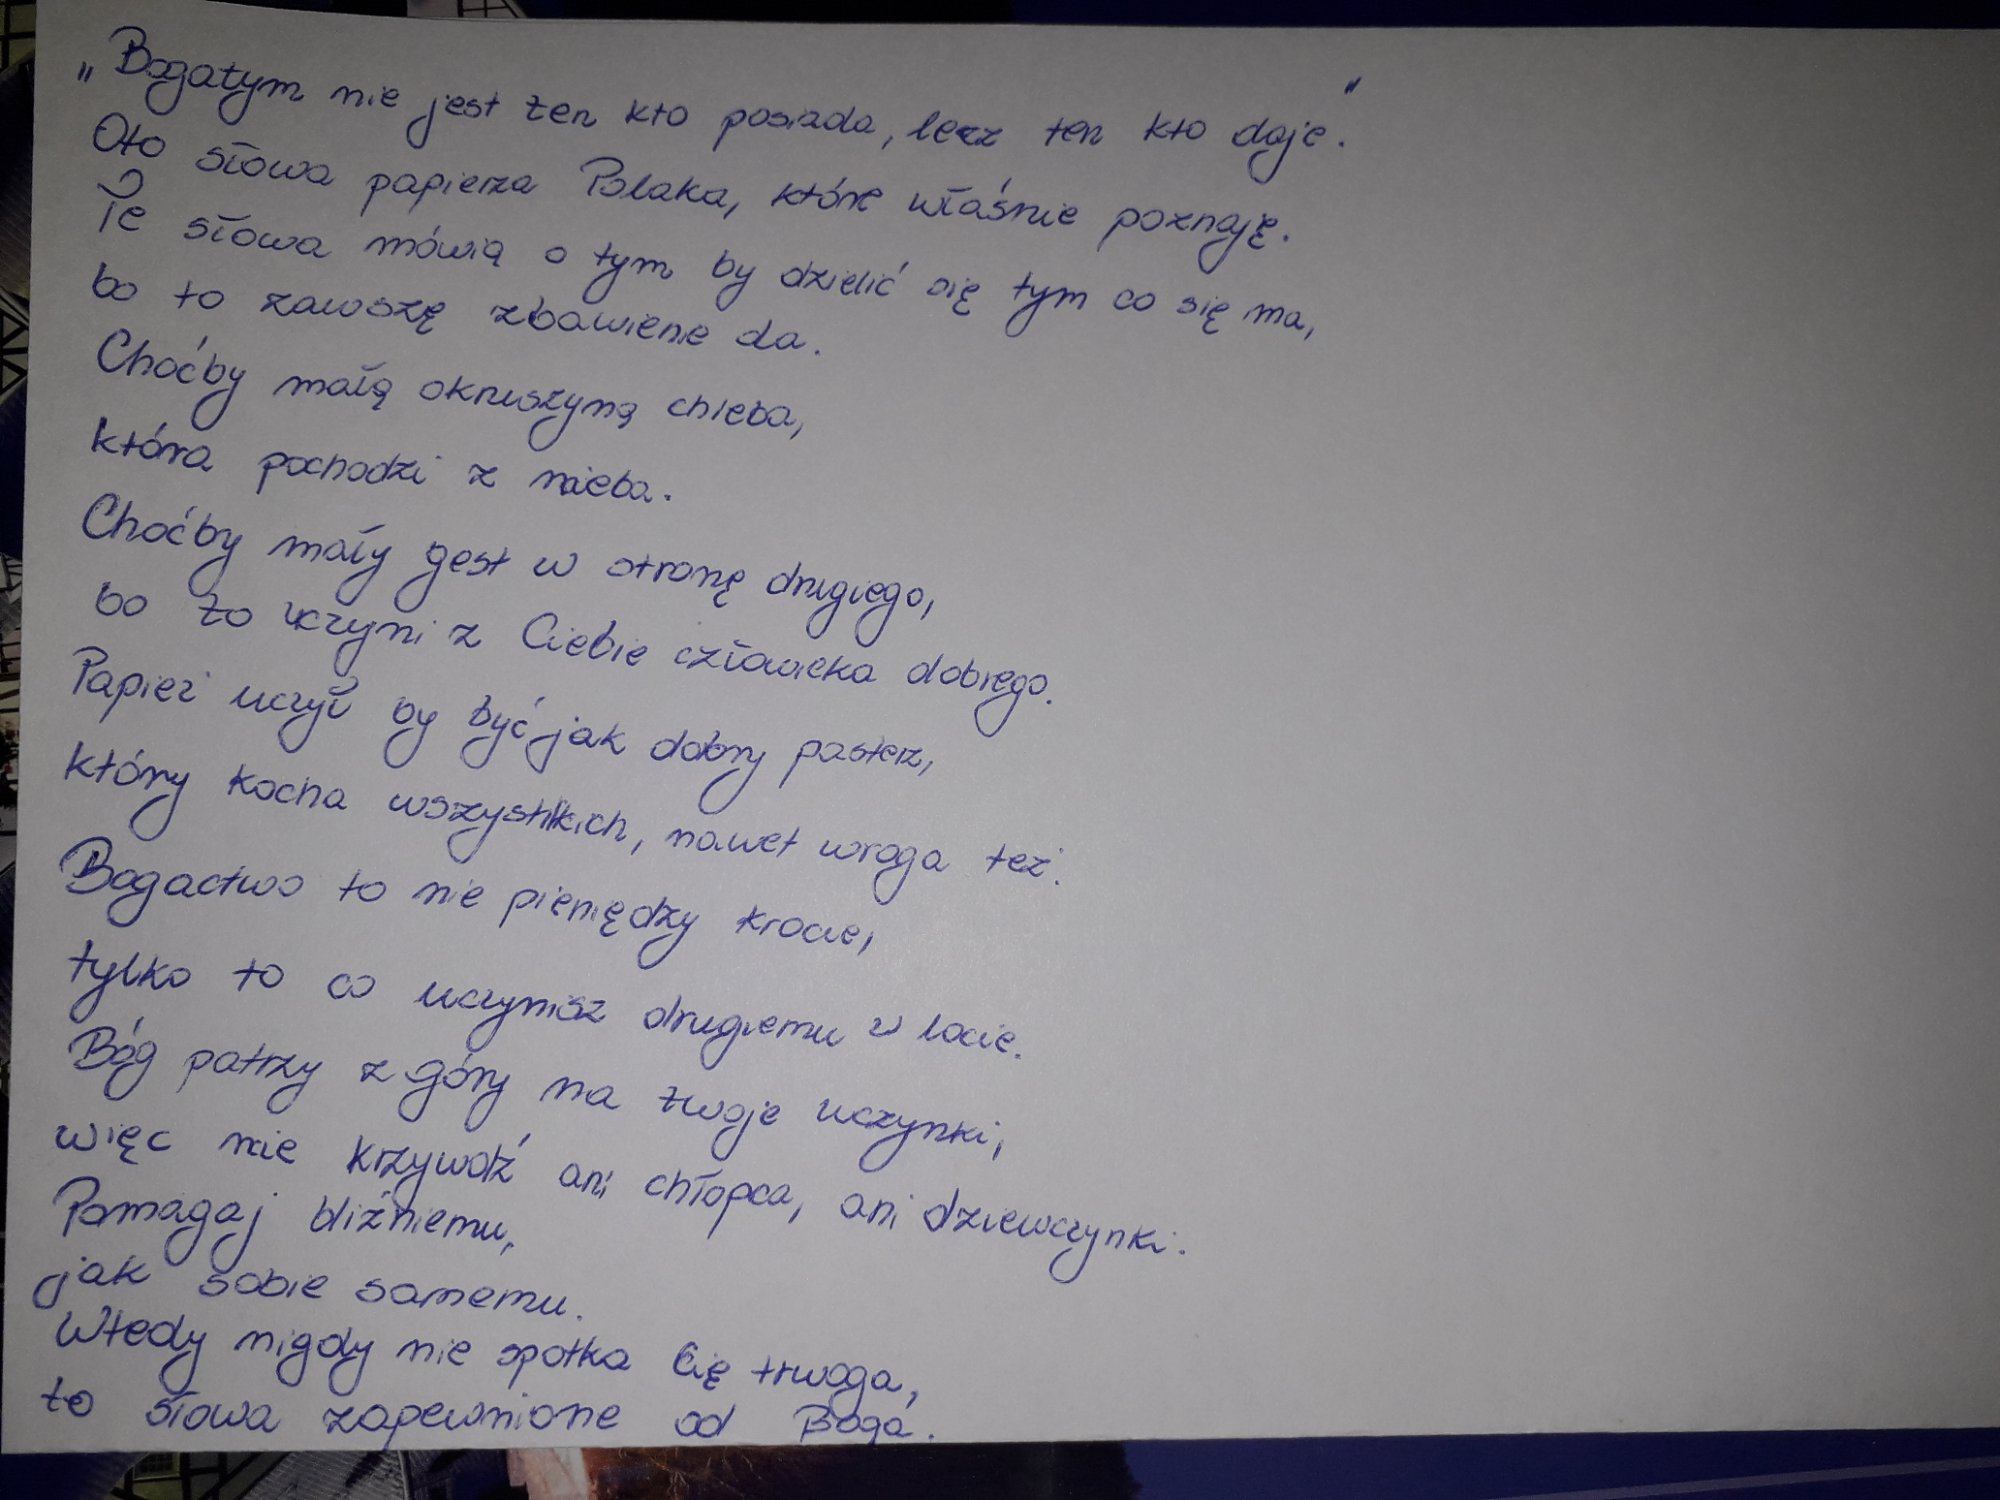 „Bogatym nie jest ten kto posiada, lecz ten kto daje."
Oto słowa papieża Polaka, które właśnie poznaję.
Te słowa mówią o tym by dzielić się tym co się ma,
bo to zawszę zbawienie da.
Choćby małą okruszyną chleba,
która pochodzi z nieba.
Choćby mały gest w stronę drugiego,
bo to uczyni z Ciebie człowieka dobrego.
Papież uczył by być jak dobry pasterz,
który kocha wszystkich, nawet wroga też.
Bogactwo to nie pieniędzy krocie,
tylko to co uczynisz drugiemu w locie.
Bóg patrzy z góry na twoje uczynki,
więc nie krzywdź ani chłopca, ani dziewczynki.
Pomagaj bliźniemu,
jak sobie samemu.
Wtedy nigdy nie spotka Cię trwoga,
to słowa zapewnione od Boga.